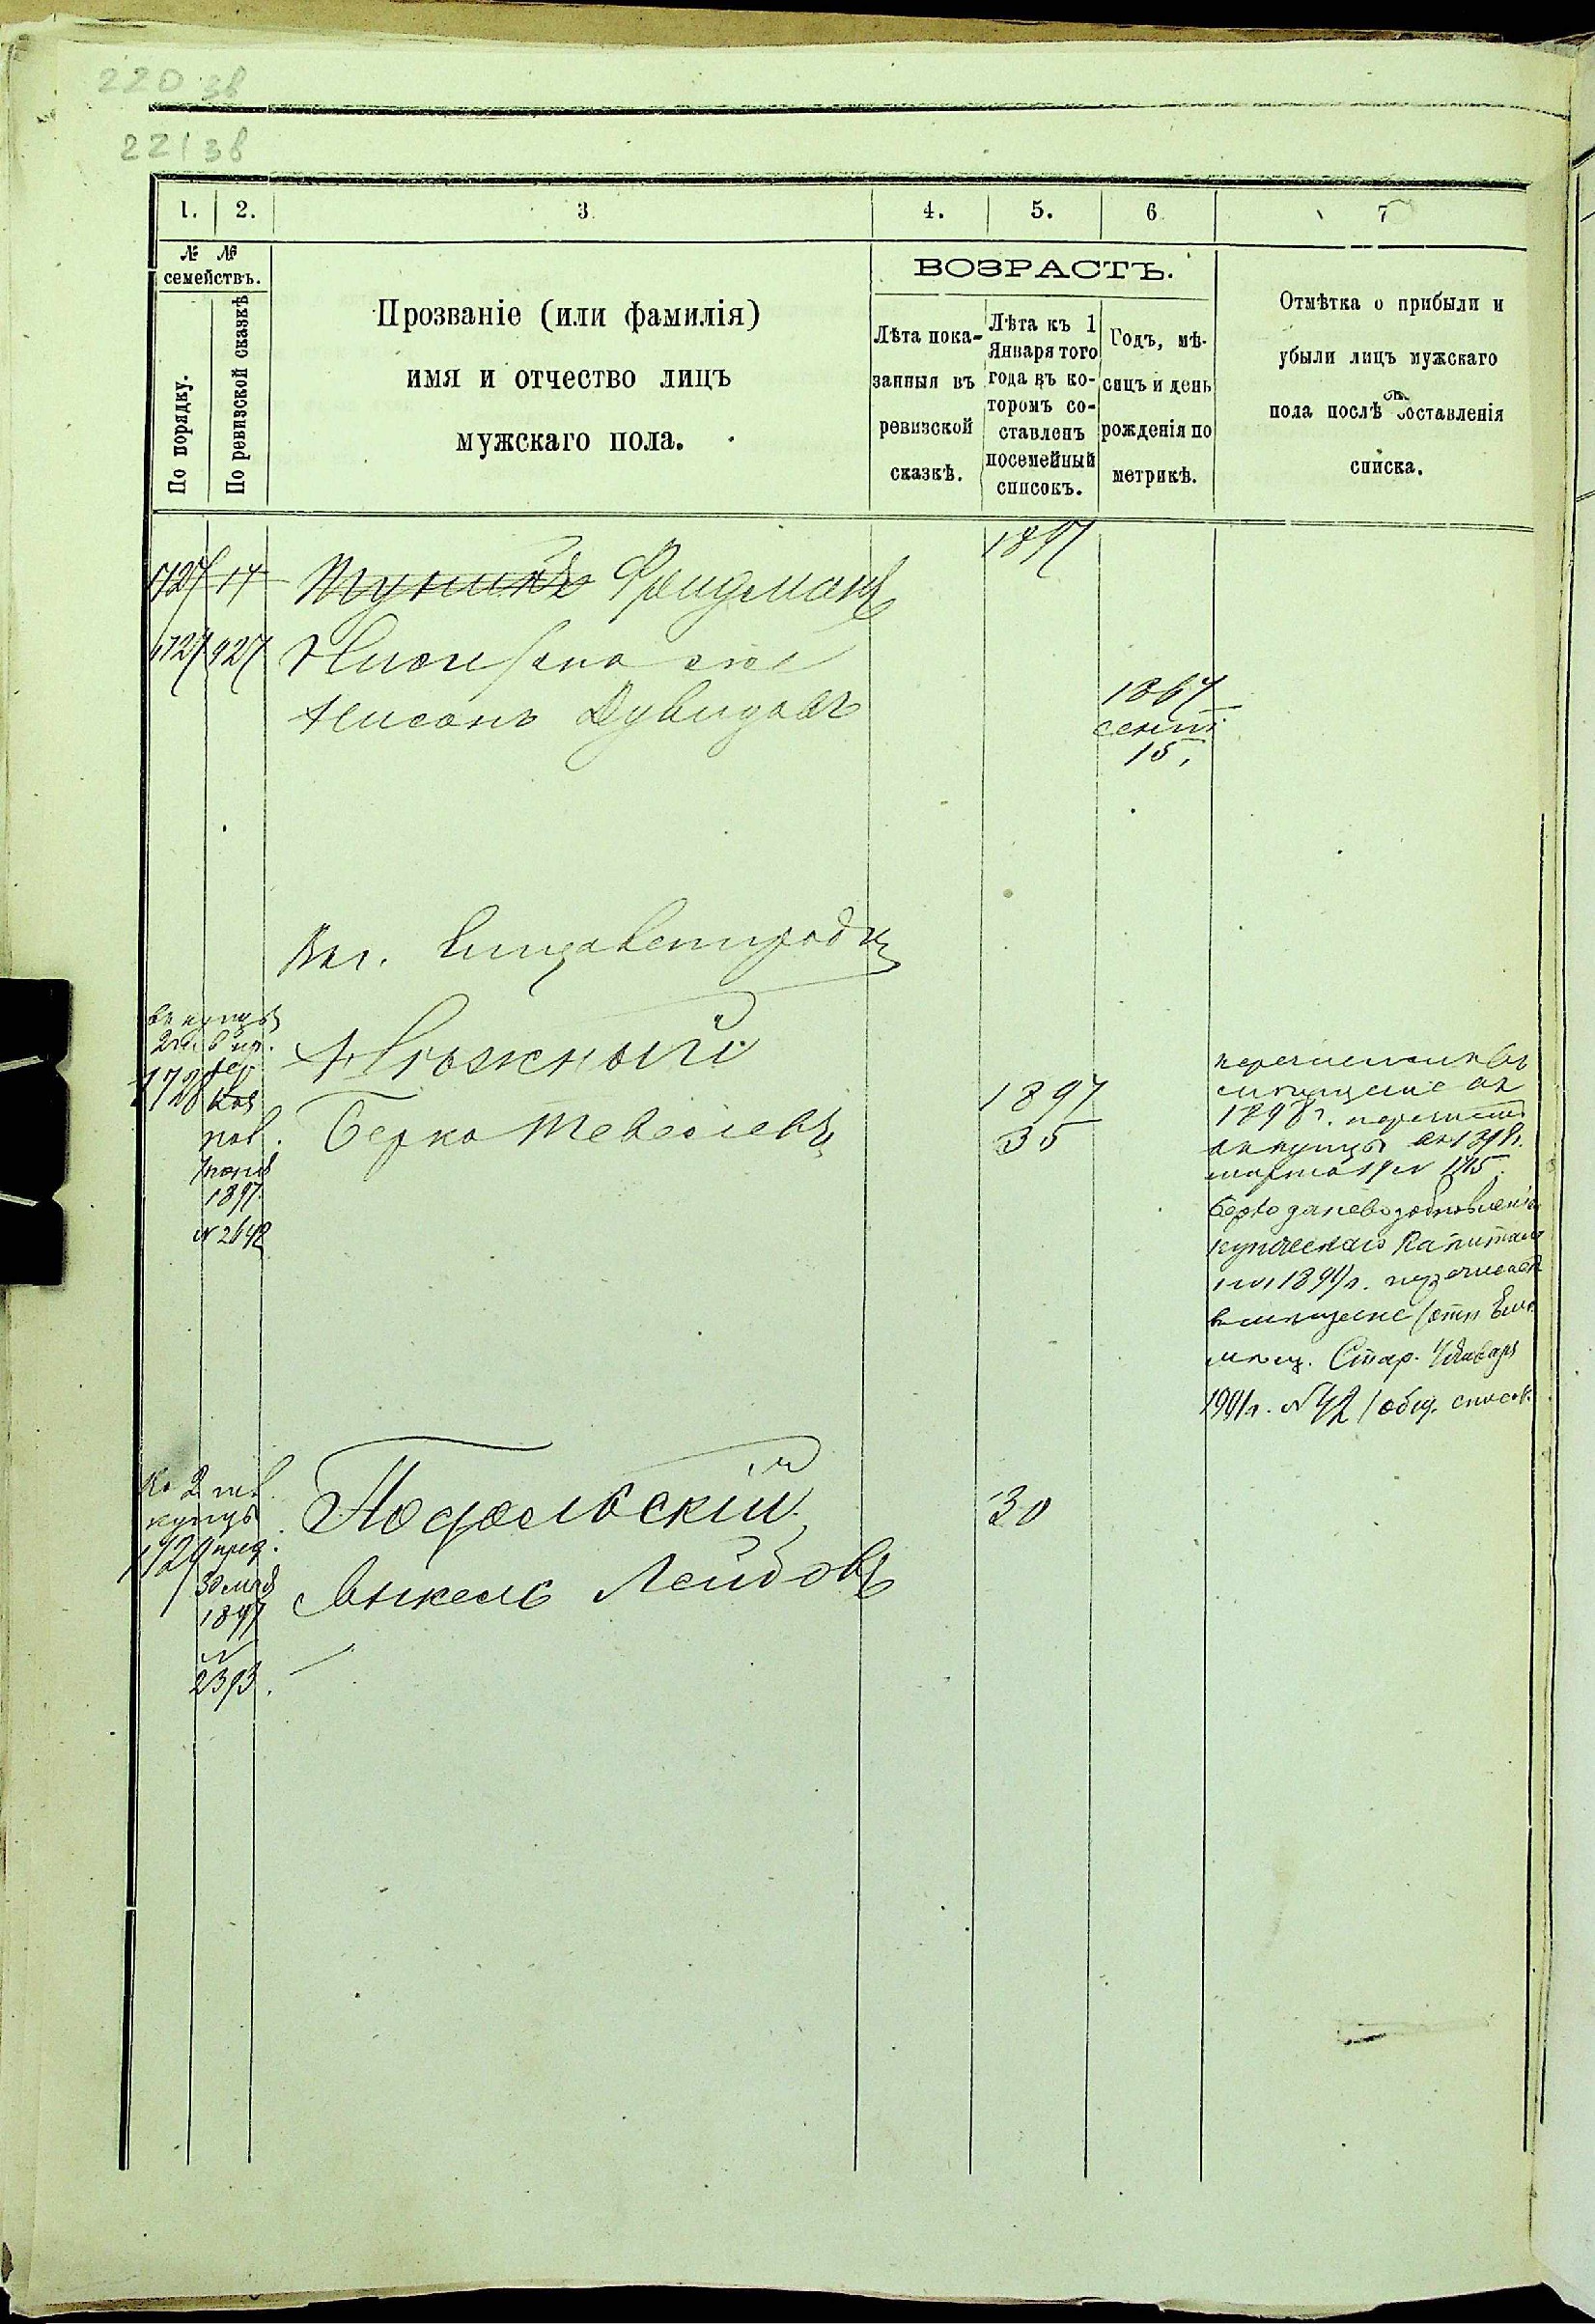 220 зв
221 зв
1. 2. 3 4. 5. 6 7
№ №
семействъ.
По порядку.
По ревизской сказкѣ
Прозваніе (или фамилія)
имя и отчество лицъ
мужскаго пола.
ВОЗРАСТЪ.
Лѣта пока-
занныя въ
ревизской
сказкѣ.
Лѣта къ 1
Января того
года въ ко-
торомъ со-
ставленъ
посемейный
списокъ.
Годъ, мѣ-
сяцъ и день
рожденія по
метрикѣ.
Отмѣтка о прибыли и
убыли лицъ мужскаго
пола послѣ составленія
списка.
1897
1727 14 Фридманъ
1727 927
Нисонъ Дувидовъ
1867
сент
15.
Елизаветград
въ купцы
2й
1728
Каз
пал.
1897.
№ 2642
Нюжный
Берко Тевелевъ
1897
35
перечисленъ въ
мѣщане съ
1898 г.
въ купцы съ 1898.
марта 19 № 1715.
Берко за невозобновленіе
купческаго капитала
1899 г. перечисленъ
въ мѣщане
мѣщ. Стар. Января
1901 г. № 42
Ко 2
купцы
1729 пред.
30 мая
1897
№
2393.
Подольскій
Янкель Лейбовъ
30